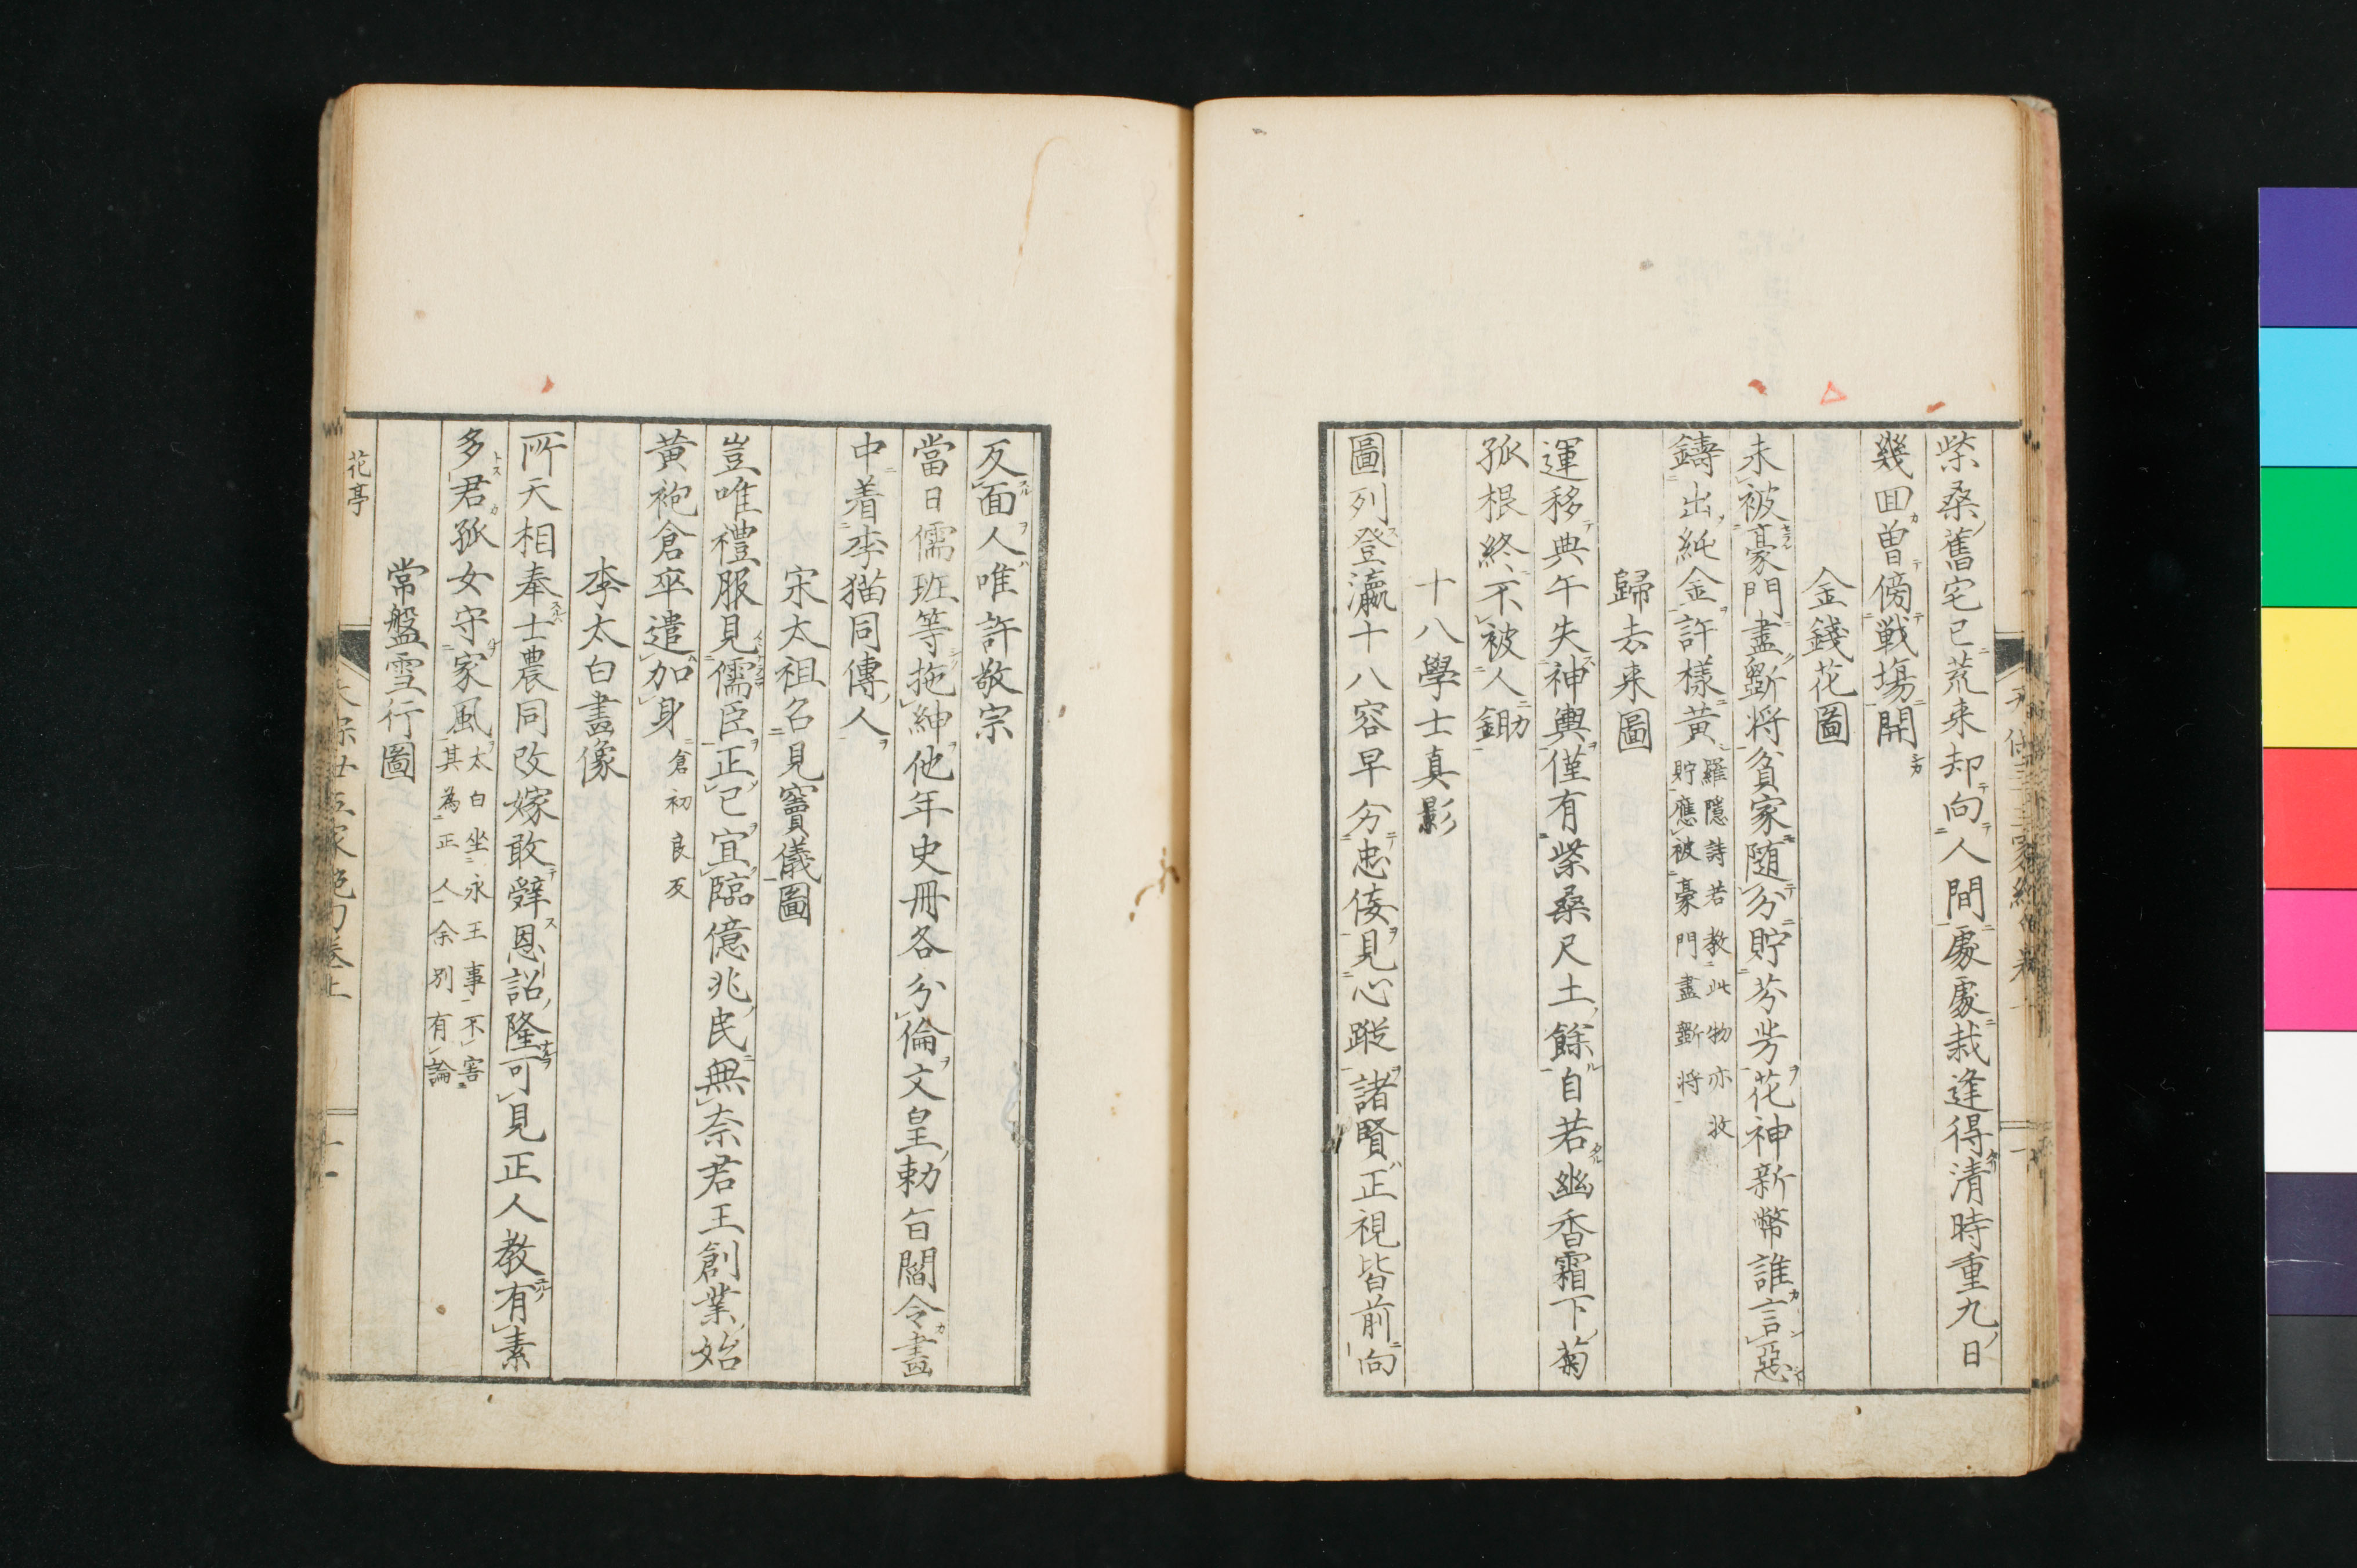 柴桑舊宅已荒来却向人間處處栽逢得清時重九日
幾回曽傍戦場開
金錢花圖
未被豪門盡斸将貧家随分貯芬芳花神新幣誰言惡
鑄出純金許様黄羅隠詩若教此物亦收
貯應被豪門盡斸将
歸去来圖
運移典午失神輿僅有柴桑尺土餘自若幽香霜下菊
孤根終不被人鋤
十八學士真影
圖列登瀛十八容早分忠倭見心蹤諸賢正視皆前向
反面人唯許敬宗
當日儒班等拖紳他年史冊各分倫文皇勅旨閻令畫
中着李猫同傳人
宋太祖名見竇儀圖
豈唯禮服見儒臣正已宜臨億兆民無奈君王創業始
黄袍倉卒遣加身倉初良反
李太白畫像
所天相奉士農同改嫁敢辞恩詔隆可見正人教有素
多君孤女守家風太白坐永王事不害
其為正人余別有論
常盤雪行圖
花亭
天保卅五家絶句巻上
十一